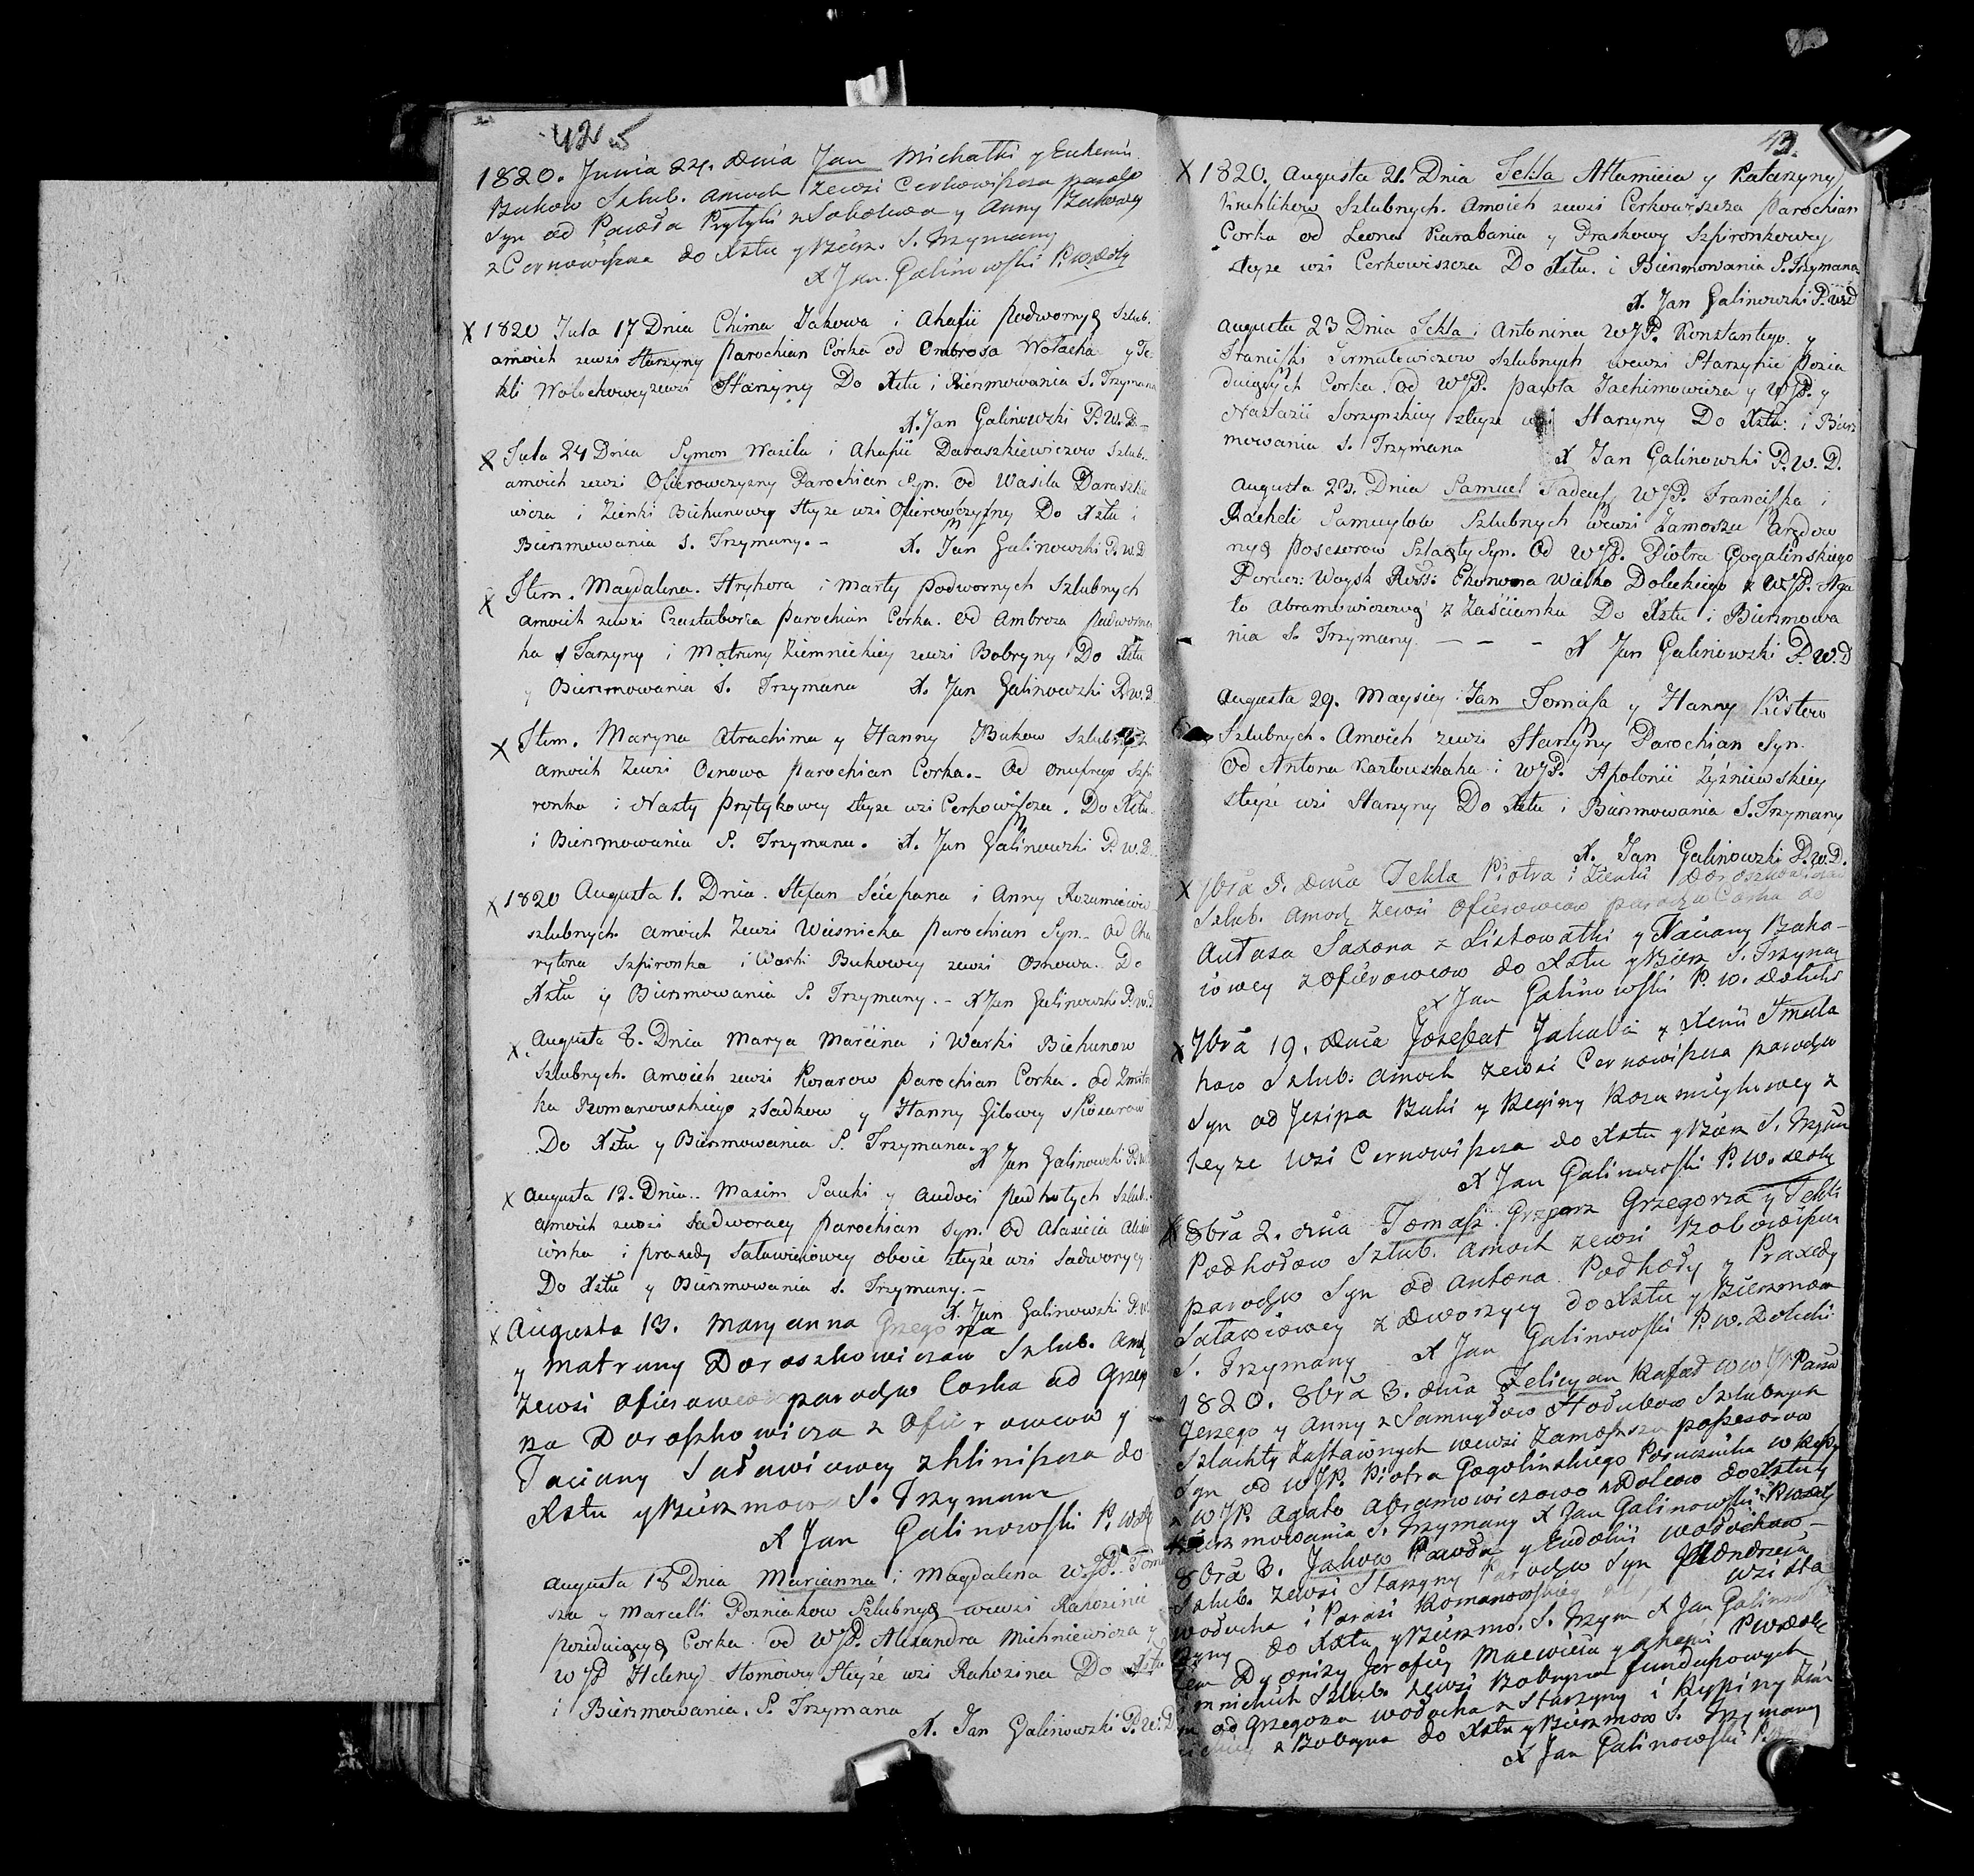 42
1820. Junia 24. dnia Jan Michałki y Eukemii
Bukow Szlub. amoch zewsi Cerkowiszcza
Syn od Pawła Prytyki z y Anny Bukowey
z Cernowiszcza do Xztu y Bierz. S. Trzymany
X Jan Galinowski P.
X 1820 Jula 17 Dnia Chima Jakowa i Ahafii Podwornych Szlub.
amoich zewsi Starzyny Parochian Corka od Ombrosa Wołacha y Te-
kli Wołochowey zewsi Starzyny Do Xztu i Bierzmowania S. Trzymana
X. Jan Galinowski P. W. D.
X Jula 24 Dnia Symon Wasila i Ahafii Daraszkiewiczow Szlub.
amoich zewsi Ofierowczyzny Parochian Syn. od Wasila Daraszkie
wicza i Zienki Bichunowey teyże wsi Ofierowczyzny Do Xztu i
Bierzmowania S. Trzymany. - X. Jan Galinowski P. W. D
X Item. Magdalena. Hryhora i Marty Podwornych Szlubnych
amoich zewsi Parochian Corka. od Ambroza Podworna
ha z Tarzyny i Matruny Ziemnickiey zewsi Bobryny Do Xztu
y Bierzmowania S. Trzymana X. Jan Galinowski P. W. D
X Item. Maryna Atrachima y Hanny Bukow Szlubnych
amoich Zewsi Osnowa Parochian Corka. - Od Onufrego Szpi
ronka i Nasty Prytykowey teyże wsi Cerkowiszcza. Do Xztu
i Bierzmowania S. Trzymana. X. Jan Galinowski P. W. D.
X 1820 Augusta 1. Dnia. Stefan Sciepana i Anny
szlubnych amoich Zewsi Wiesnicka Parochian Syn. - Od Cha
rytona Szpironka i Warki Bukowey zewsi Osnowa. Do
Xztu y Bierzmowania S. Trzymany. - X Jan Galinowski P. W. D
X Augusta 8. Dnia Marya Marcina i Warki Bichunow
Szlubnych. amoich zewsi Kosarow Parochian Corka. od Zmitr
ka Romanowskiego z Sadkow y Hanny Gilowey z Kosarow
Do Xztu y Bierzmowania S. Trzymana.
X Jan Galinowski P. W.
X Augusta 12. Dnia.. Maxim Sauki y Audoci Padhołych Szlub.
amoich zewsi Sadworacy Parochian Syn. od
i Praxedy Saławieiowey oboie teyże wsi Sadworycy
Do Xztu y Bierzmowania S. Trzymany. -
X. Jan Galinowski P. W.
X Augusta 13. Maryanna Grzegorza
y Matruny Doroszkowiczow Szlub. amoch
Zewsi Ofierowcow parochow Corka od Grzego
rza Doroszkowicza z Ofierowcow y
Taciany Saławiowey z Hliniszcza do
Xztu y Bierzmow S. Trzymana
X Jan Galinowski P.
Augusta 15 Dnia Marianna i Magdalena WJP. Toma
sza y Marcelli Pozniakow Szlubnych wewsi Rahozinie
poziduiących Corka od WJP. Alexandra Michniewicza y
WJP Heleny Słomowey teyże wsi Rahozina Do Xztu
i Bierzmowania. S. Trzymana
X. Jan Galinowski P. W. D
43.
X 1820. Augusta 21. Dnia Tekla Attamieia y Katarzyny
Kuhlikow Szlubnych. amoich zewsi Cerkowiszcza Parochian
Corka od Leona Karabania y Praskowy Szpironkowey
teyże wsi Cerkowiszcza Do Xztu. i Bierzmowania S. Trzymana
X. Jan Galinowski P. W. D
Augusta 23 Dnia Tekla i Antonina WJP. Konstantego y
Franciszki Szlubnych wewsi Starzynie Pozia
duiących Corka od WJP. Pawła Jachimowicza y WJP. y
Nastazii teyże wsi Starzyny Do Xztu: i Bierz
mowania S. Trzymana X Jan Galinowski P. W. D.
Augusta 23. Dnia Samuel Tadeusz WJP. Franciszka i
Racheli Samuyłow Szlubnych wewsi Zamoszu
Poseserow Szlachty Syn. Od WJP. Piotra Gogalinskiego
Porucz: Woysk Ross: Ekonoma Wielko Doleckiego z WJP. Aga
to Abramowiczową z Zaścianka Do Xztu i Bierzmowa
nia S. Trzymany. - - - X Jan Galinowski P. W. D
Augusta 29. Maysiey Jan Tomasza y Hanny Kistow
Szlubnych. Amoich zewsi Starzyny Parochian Syn.
Od Antona i WJP. Apolonii Zyźniewskiey
teyże wsi Starzyny Do Xztu i Bierzmowania S. Trzymany
X. Jan Galinowski P. W. D.
X 7bra 5. dnia Tekla Piotra i Zienki
Szlub. amoch zewsi Ofierowcow parochow Corka od
Antosa Saxona z Listowatki y Taciany Buka-
iowey z Ofierowcow do Xztu y Bierz S. Trzymana
X Jan Galinowski P. W.
X 7bra 19. dnia Jozefat Jakuba y Xenii Tmula
kow Szlub: amoch zewsi Cernowiszcza parochow
Syn od Jesipa Buki y Reginy z
teyże wsi Cernowiszcza do Xztu y Bierz S. Trzyma
X Jan Galinowski P. W.
X 8bra 2. dnia Tomasz Grzegorz Grzegorza y Tekli
Podhołow Szlub. amoch zewsi
parochow Syn od Antona Podhoły y Praxedy
Saławiowey z Dworzycy do Xztu y Bierzmow
S. Trzymany X Jan Galinowski P. W.
1820. 8bra 3. dnia Felicyan Rafał
Jerzego y Anny z Samuyłow Hołubow Szlubnych
Szlachty Zastawnych wewsi Zamoszu possesorow
Syn od WJP. Piotra Gogolinskiego Porucznika
z WJP. Agato Abramowiczowo z Dolcow do Xztu y
Bierzmowania S. Trzymany X Jan Galinowski P.
8bra 3. Jakow Pawła y Eudokii Wołochow
Szlub. zewsi Starzyny Parochow Syn Andrzeia
Wołocha i Parasi Romanowskiey wsi Sta
rzyny do Xztu y Bierzmo. S. Trzym X Jan Galinowski
Dyonizy Jerofiey Maewieia y P.
Szlub. zewsi Bobryna funduszowych
od Grzegorza Wołocha z Starzyny i
z Bobryna do Xztu y Bierzmow S. Trzymany
X Jan Galinowski P.